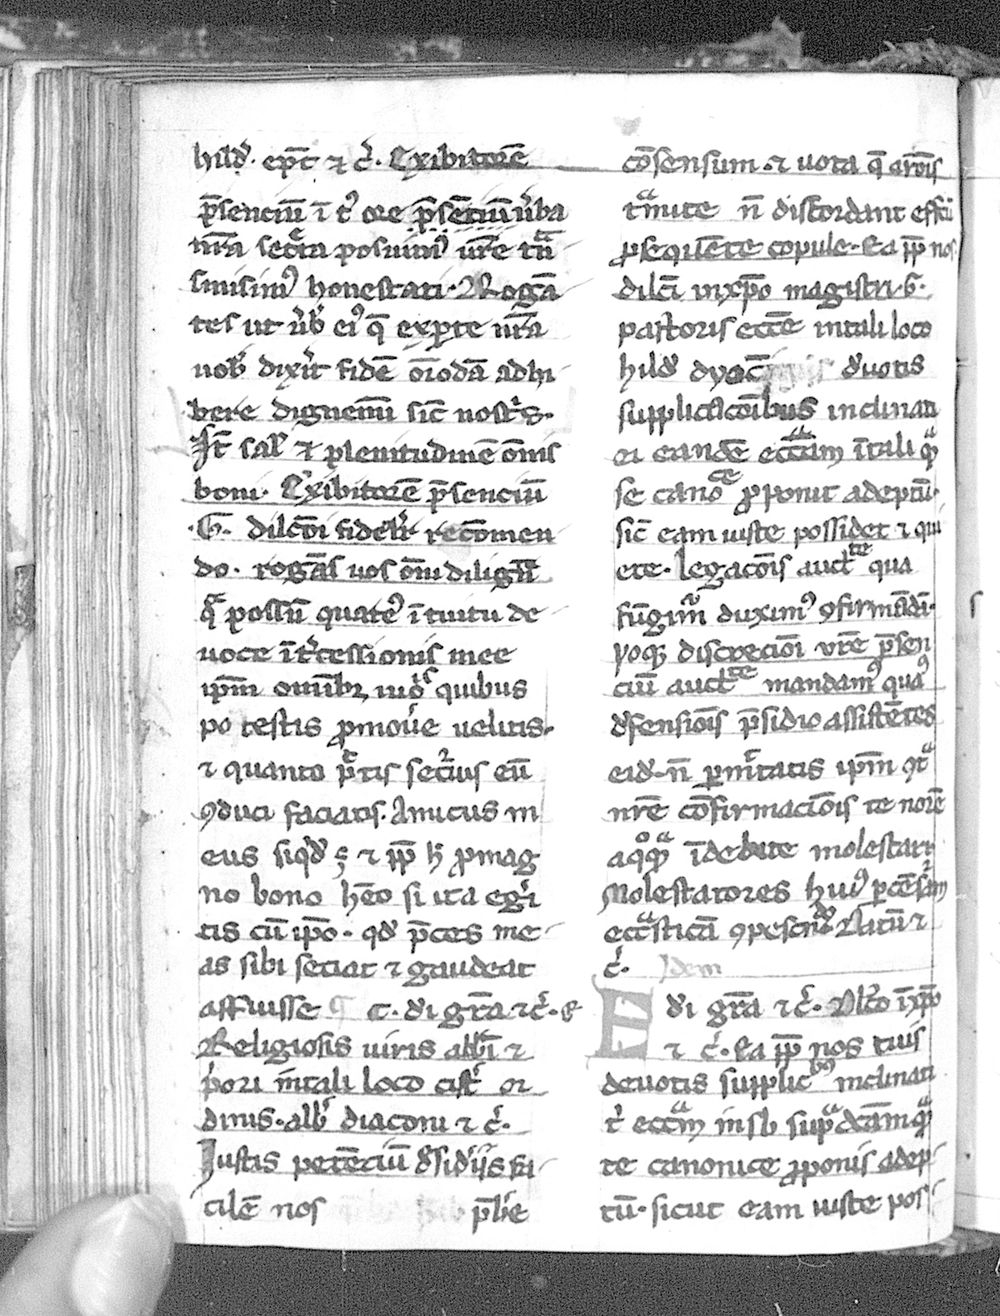 hild̕. ep̄c̄ ⁊ c̄. Exibitorē
p̄senciū ī c̕ ore p̄sēciū ūba
nr̄a secͤta posuimꝰ ūre tn̄
simꝰ honestati. Rogā
tes ut ūb̄ eiꝰ q̄ exparte nr̄a
uob̕ dix̕it fidē oīodā adhi
bere dignemī sic̄ nost̕s.
It̄ sal̕ ⁊ plenitudinē om̄is
boni. Exibitorē p̄senciū
.G. dilc̄oi fidel̕r recōmen
do. rogās uos om̄i dilign̄
q̄ possū quateꝰ ītuitu de
uoce īt̕cessionis mee
ip̄m omībꝫ mōis quibus
potestis ꝓmoūe uelitis.
⁊ quanto p̄tis seci̕us eū
ꝯduci faciatis. Amicus m
eus siqd̕ ⁊ pp̄ h̄ ꝓmag
no bono hēo si ita eg̕i
tis cū ip̄o. qd̕ p̄ces me
as sibi sēciat ⁊ gaudeat
affuisse ¶ C. di gr̄a ⁊c̄. ⁊
Religiosis uiris abb̄i ⁊
p̕ori intali loco cist̕ or
dinis. alb̕ diaconi ⁊ c̄.
Iustis petēciū d̕sid̕iis fa
cilē nos p̄b̕e
cōsensum. ⁊ uota q̄ ar̄oīs
tͣmite n̄ discordant effcū
ꝓseq̄uēte copule. Ea pp̄ nos
dilc̄i inxp̄o magistri. G.
pastoris ecc̄e intali loco
hild̕ dyoc̄ d̕uotis
supplicac̄oībus inclinati
ei eandē ecc̄am ītali qͣ
se canōͨͤ ꝓponit adeptū.
sic̄ eam iuste possidet ⁊ qui
ete. legac̄ois auctͭͤ qua
fūgim̄ duximꝰ ꝯfirmādā.
yoqꝫ discrecioī vr̄e p̄sen
ciū auctͭͤ mandamꝰ quaꝰ
d̕fensioīs p̄sidio assistētes
eid̕. n̄ ꝑm̕tatis ip̄m ꝯtͣ
nr̄e cōfirmacioīs tenorē
aqͦqͣ īdebite molestari
Molestatores huiꝰ ꝑcēs̕am
ecc̄asticā ꝯpescn̄d̕ Datū ⁊
c̄. Idem
E di gr̄a ⁊c̄. Dilc̄o īxp̄o
⁊ c̄. Ea pp̄ nos tuis
deuotis supplicᵇꝰ inclinati
t̕ ecc̄am insb̕ supͣdc̄am qͣ
te canonice ꝓponis adep
tū. sicut eam iuste pos